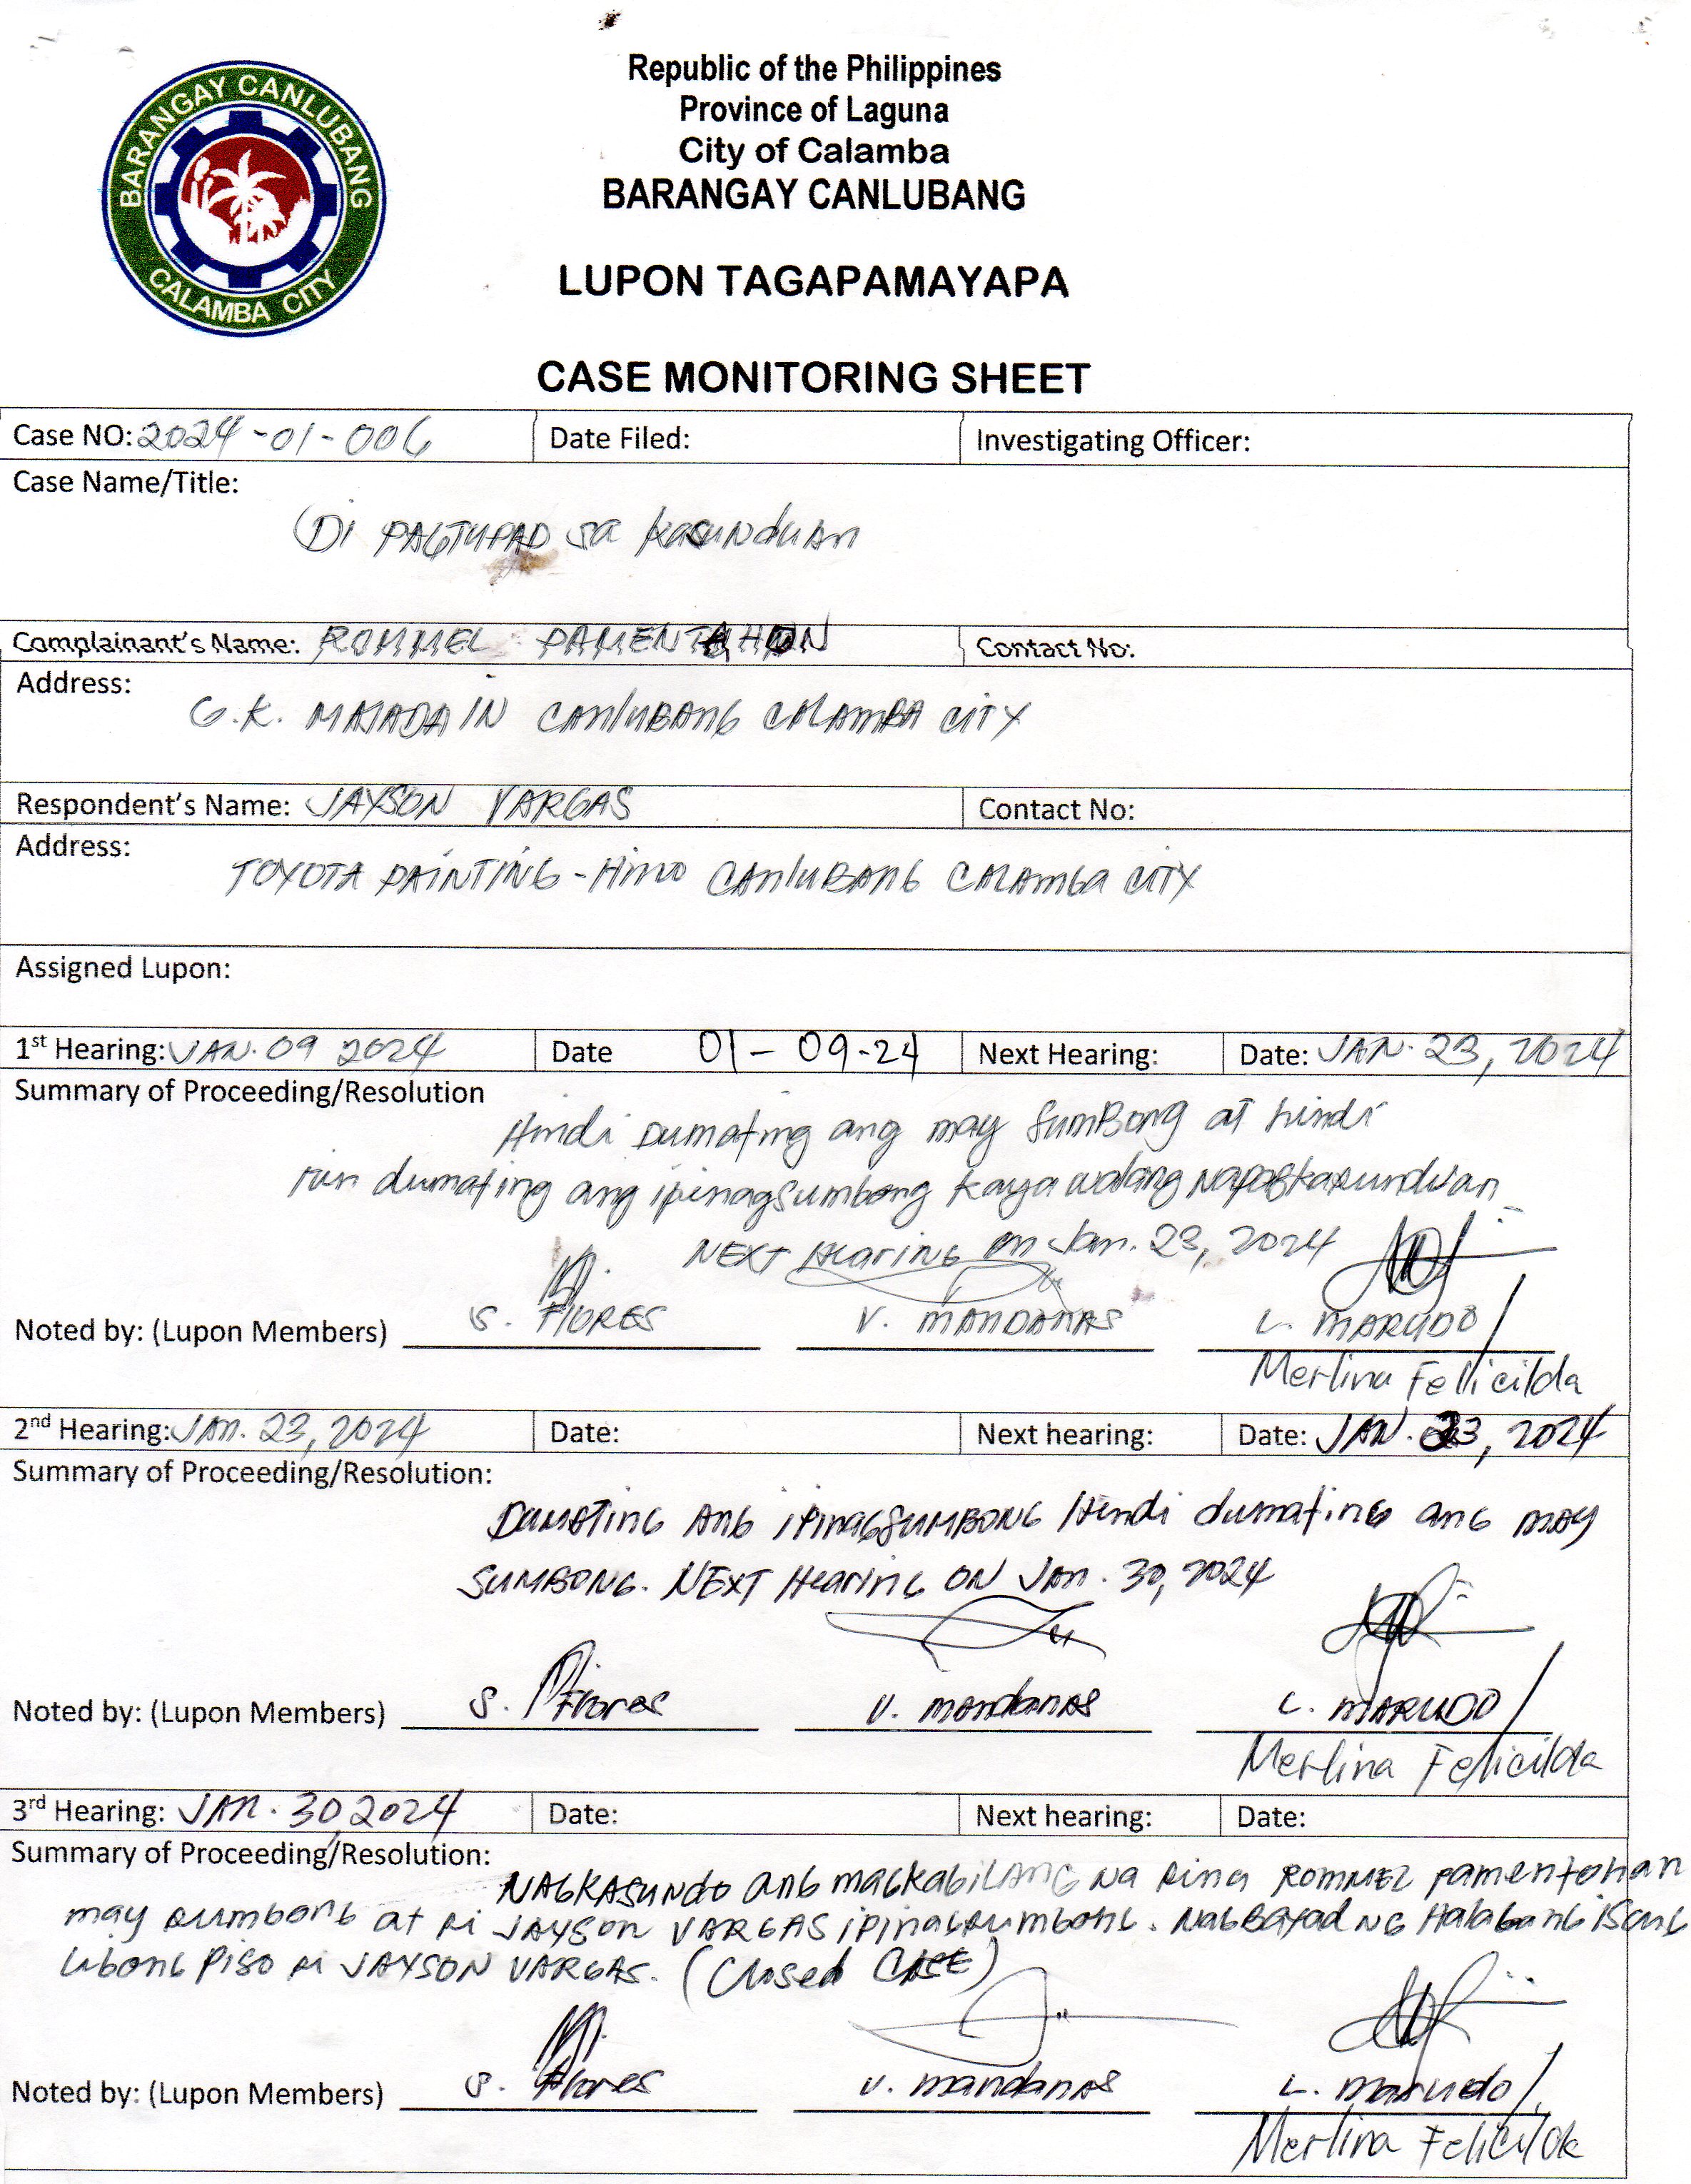 BARANGAY CANLUBANG
CALAMBA CITY
Republic of the Philippines
Province of Laguna
City of Calamba
BARANGAY CANLUBANG
LUPON TAGAPAMAYAPA
CASE MONITORING SHEET
Case NO: 2024-01-006 Date Filed: Investigating Officer:
Case Name/Title:
Di PAGTUPAD sa kasunduan
Complainant's Name: ROMMEL PAMENTAHON Contact No:
Address:
G.K. MAJADA IN CANLUBANG CALAMBA CITY
Respondent's Name: JAYSON VARGAS Contact No:
Address:
TOYOTA PAINTING-Hino CANLUBANG CALAMBA CITY
Assigned Lupon:
1st Hearing: JAN. 09 2024 Date 01-09-24 Next Hearing: Date: JAN. 23, 2024
Summary of Proceeding/Resolution
Hindi Dumating ang may SumBong at hindi
rin dumating ang ipinagsumbong kaya walang Napagkasunduan
NEXT HEARING on Jan. 23, 2024
S. FLORES V. MANDANAS L. MARUDO
Noted by: (Lupon Members)
Merlina Fellicilda
2nd Hearing: JAN. 23, 2024 Date: Next hearing: Date: JAN. 23, 2024
Summary of Proceeding/Resolution:
DUMATING ANG iPINAGSUMBONG Hindi dumating ang may
SUMBONG. NEXT Hearing ON Jan. 30, 2024
Noted by: (Lupon Members) S. Flores V. mandanas L. MARUDO
Merlina Felicilda
3rd Hearing: JAN. 30, 2024 Date: Next hearing: Date:
Summary of Proceeding/Resolution:
NAGKASUNDO ang magkabilang na sina ROMMEL pamentohan
may sumbong at si JAYSON VARGAS ipinagsumbong. Nagbayad NG Halagang isang
libong Piso si JAYSON VARGAS. (Closed CASE)
Noted by: (Lupon Members) S. Flores V. mandanas L. marudo
Merlina Felicilda